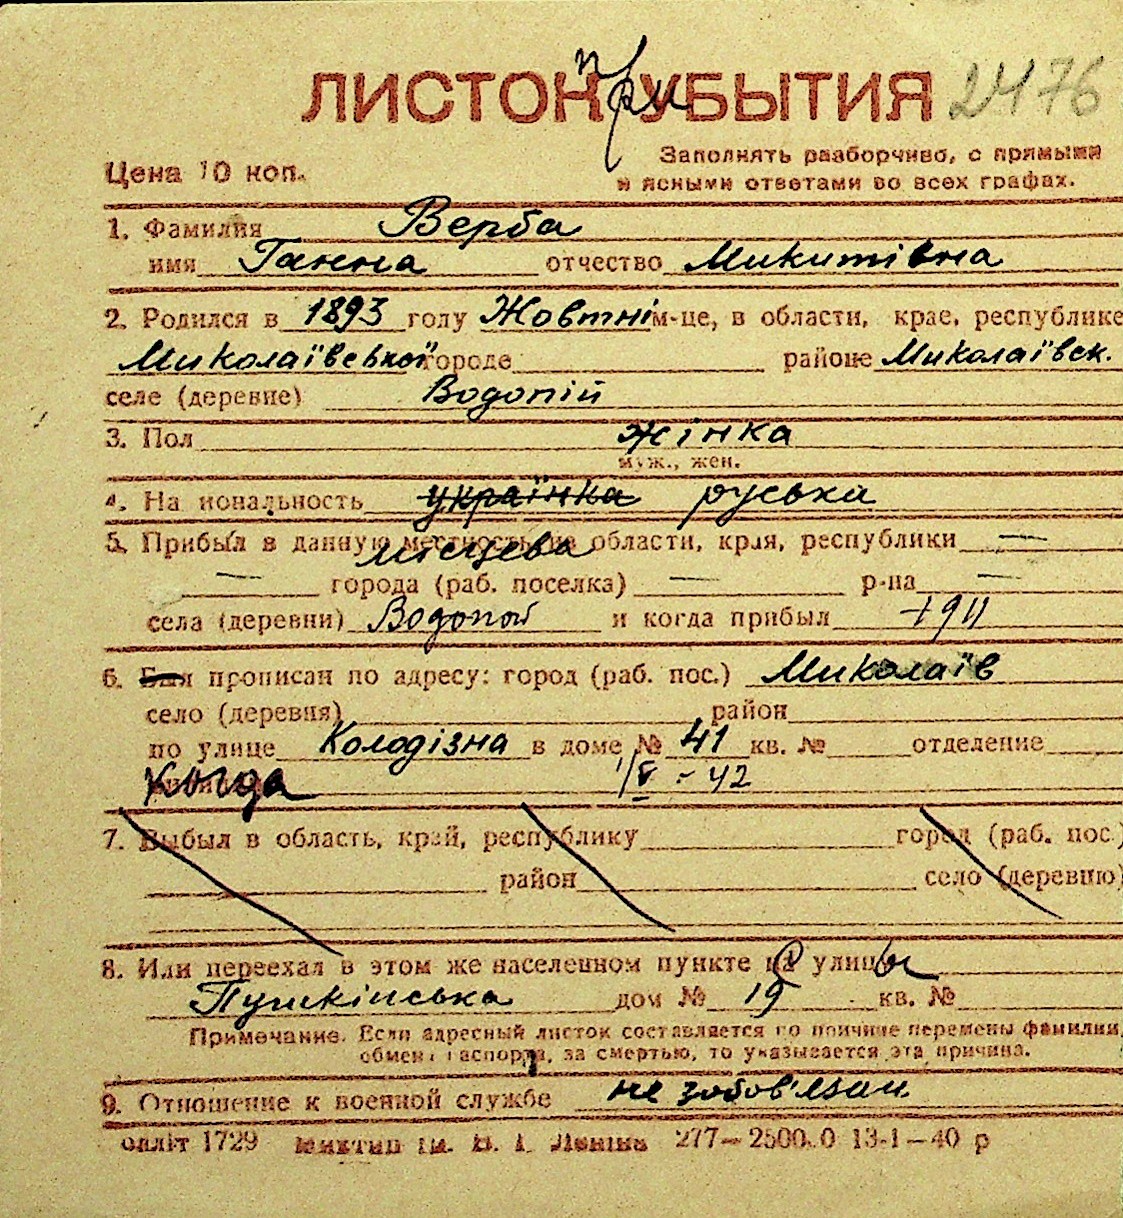 ЛИСТОК при УБЫТИЯ 2476
Цена 10 коп. Заполнять разборчиво, с прямыми
и ясными ответами во всех графах.
1. Фамилия Верба
имя Ганна отчество Микитівна
2. Родился в 1893 году Жовтні м-це, в области, крае, республике
Миколаївської городе районе Миколаївськ.
селе (деревне) Водопій
3. Пол жінка
муж., жен.
4. На иональность українка руська
5. Прибыл в данную местность из области, края, республики —
місцева
— города (раб. поселка) — р-на —
села (деревни) Водопой и когда прибыл 1911
6. Был прописан по адресу: город (раб. пос.) Миколаїв
село (деревня) район
по улице Колодізна в доме № 41 кв. № отделение
Когда 1/V - 42
7. Выбыл в область, край, республику город (раб. пос.)
район село (деревню)
8. Или переехал в этом же населенном пункте с улицы
Пушкінська дом № 19 кв. №
Примечание. Если адресный листок составляется по причине перемены фамилии,
обмена паспорта, за смертью, то указывается эта причина.
9. Отношение к военной службе не зобов'язан.
облліт 1729 Миктип ім. В. І. Леніна 277—2500.0 13-1—40 р